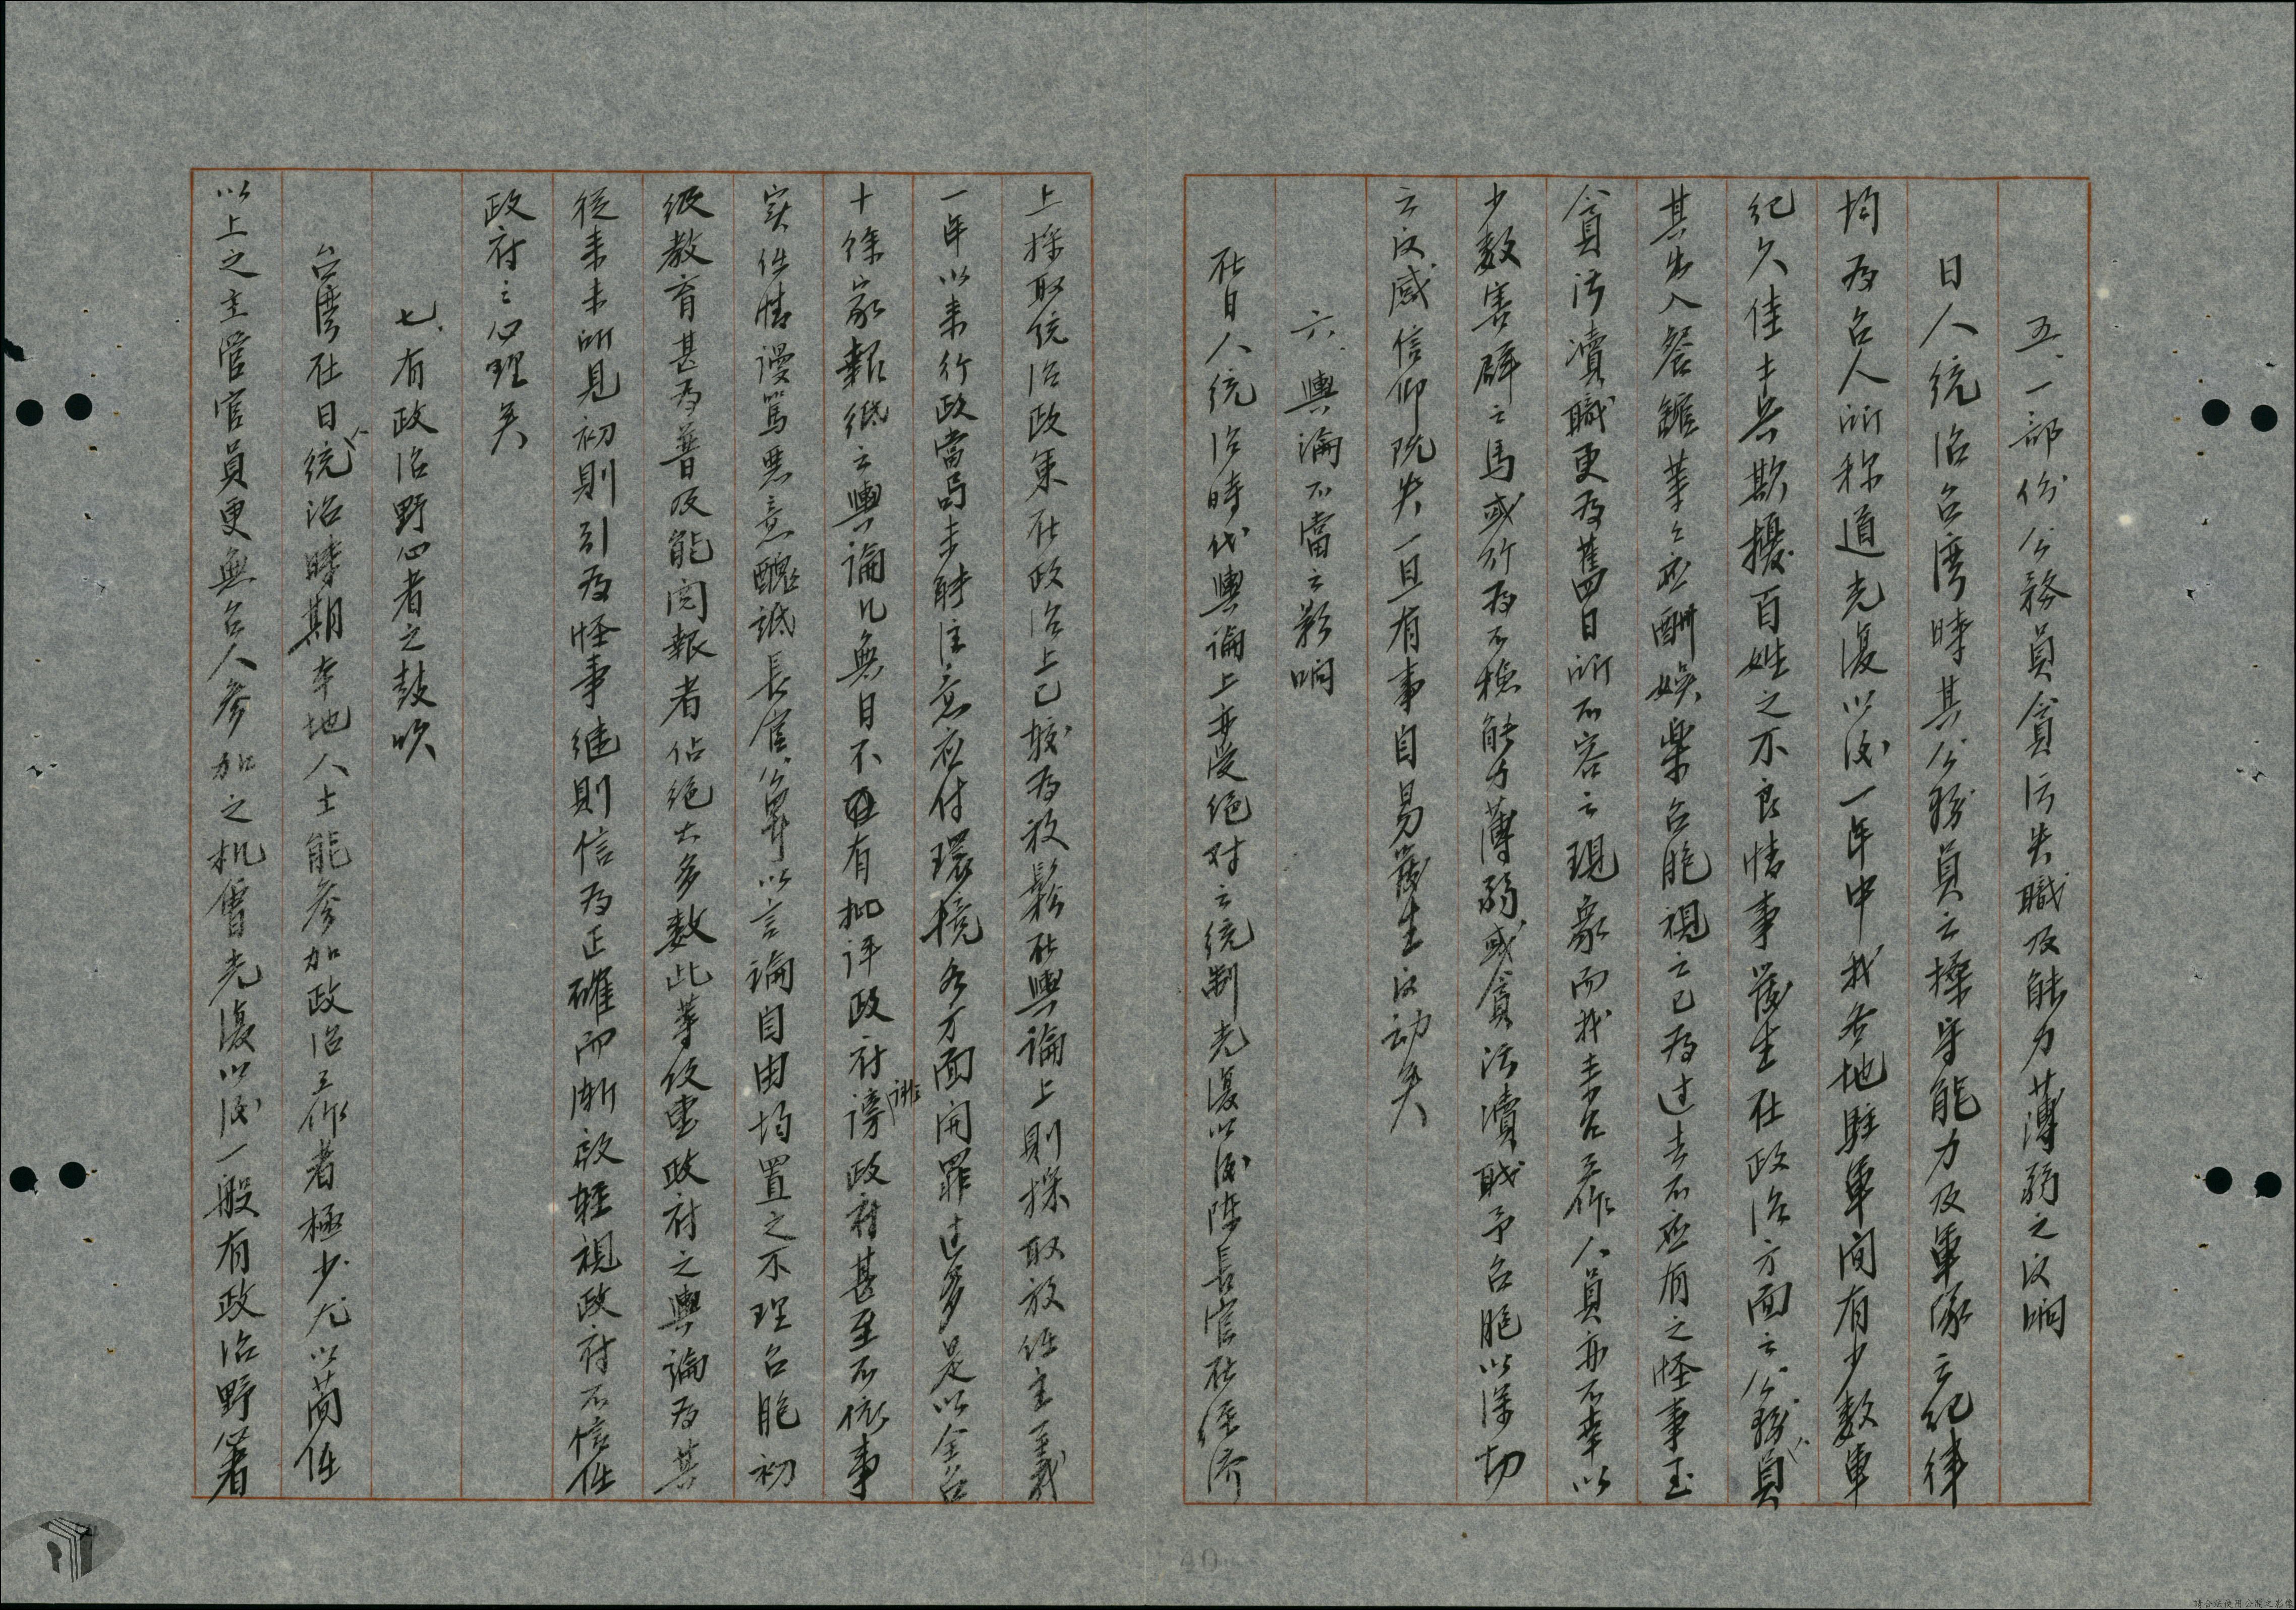 五、一部份公務員貪污失職及能力薄弱之反响
日人統治台灣時其公務員之操守能力及軍隊之紀律
均為台人所称道光復以后一年中我各地駐軍間有少數軍
紀欠佳士兵欺擾百姓之不良情事發生在政治方面之公務員
其出入餐館莘之应酬娛樂台胞視之已為过去不应有之怪事至
貪污瀆職更為舊日所不容之現象而我來台工作人員亦不幸以
少數害群之馬或行為不檢能力薄弱或貪污瀆职予台胞以深切
之反感信仰既失一旦有事自易發生反动矣
六、輿論不當之影响
在日人統治時代輿論上亦受絕对之統制光復以后陳長官在经济
上採取统治政策在政治上已較為放鬆在輿論上則採取放任主義
一年以来行政當局未能注意应付環境各方面開罪过多是以全台
十餘家報纸之輿論几無日不有批评政府誹謗政府甚至不依事
实任情謾駡惡意醜詆長官公署以言論自由均置之不理台胞初
级教育甚為普及能阅報者佔絕大多數此等侮蔑政府之輿論為其
從来未所見初則引為怪事继則信為正確而漸啟輕視政府不信任
政府之心理矣
七、有政治野心者之鼓吹
台灣在日統治時期本地人士能參加政治工作者極少尤以简任
以上之主管官員更無台人參加之机會光復以后一般有政治野心者
40
請合法使用公開之影像